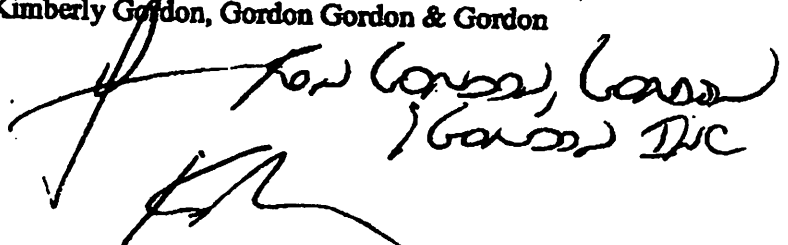 Kimberly Gordon, Gordon Gordon & Gordon
Ron Gordon, Gordon
Gordon INC